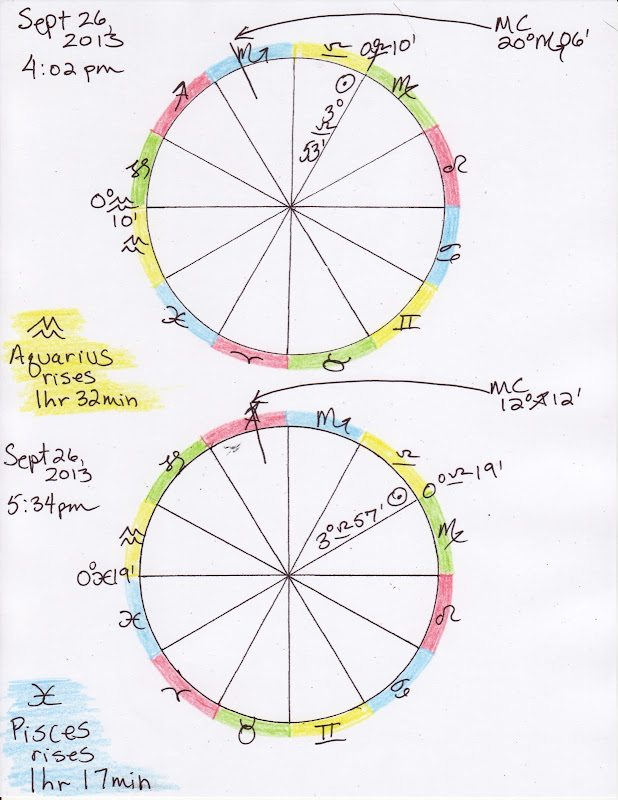 Sept 26,
2013
4:02 pm
MC
20°♏06'
♐
♏
♎
0°♎10'
♍
☉
3°
♎
53'
♑
♌
0°♒
10'
♒
♋
♓
♈
♉
♊
♒
Aquarius
rises
1hr 32min
MC
12°♐12'
Sept 26,
2013
5:34pm
♑
♐
♏
♎
☉
0°♎19'
3°♎57'
♒
♍
0°♓19'
♓
♌
♈
♉
♊
♋
♓
Pisces
rises
1hr 17min